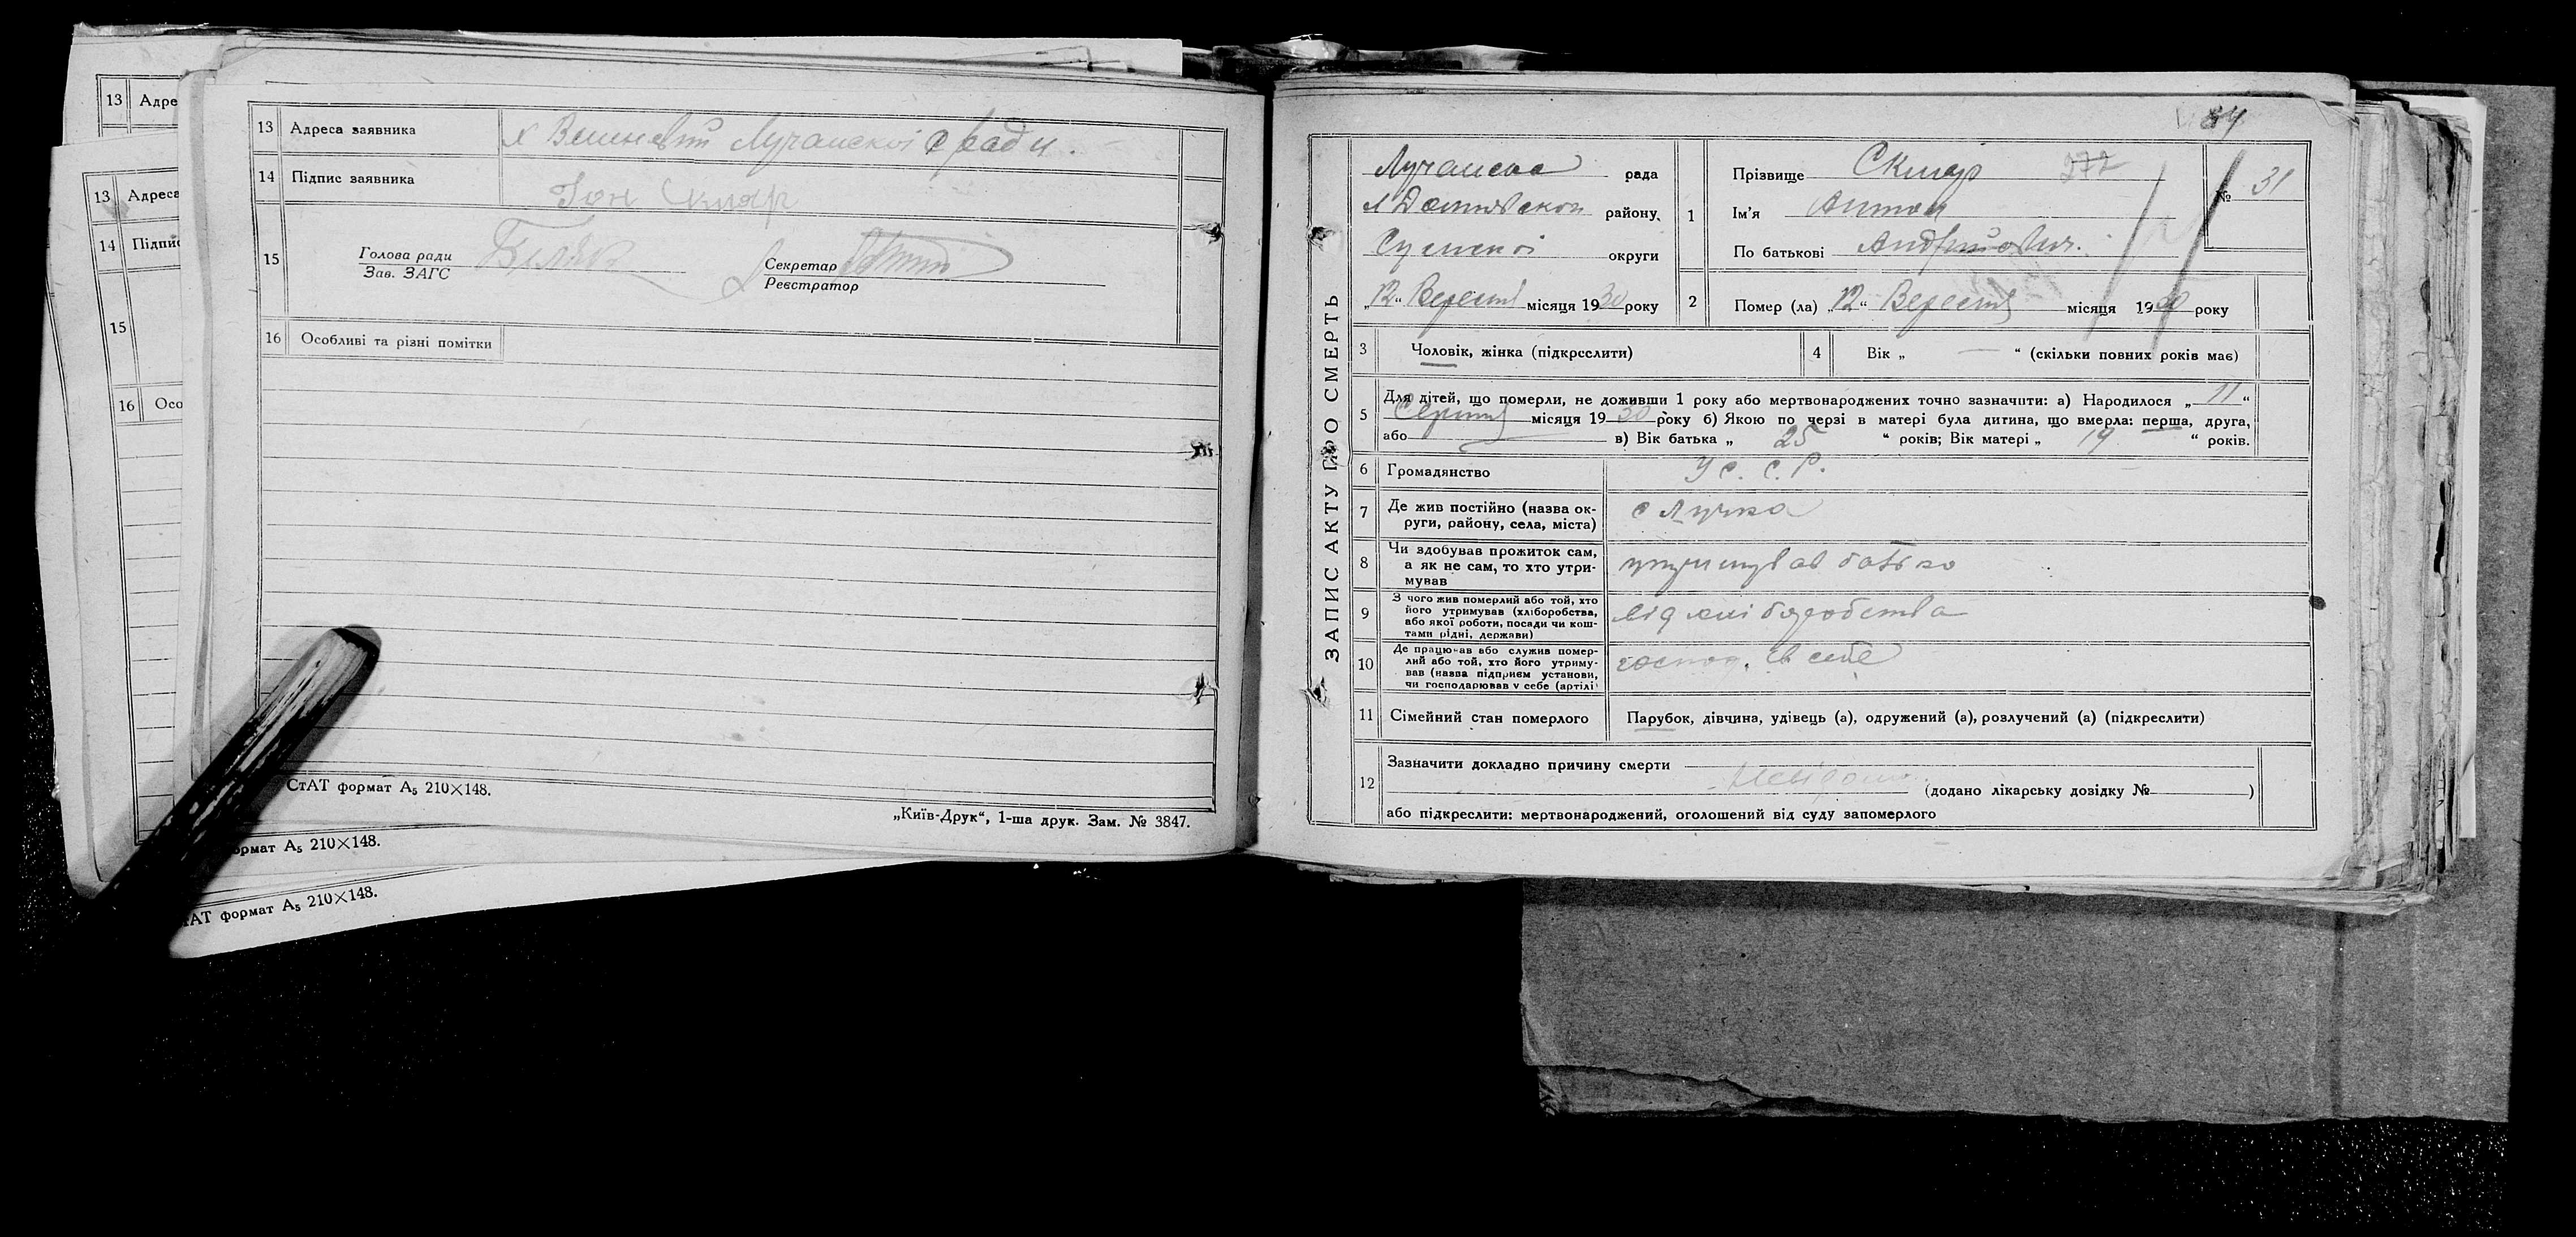 13 Адре
13 Адреса
14 Підпис
15
16 Осо
формат А₅ 210×148.
ТАТ формат А₅ 210×148.
13 Адреса заявника х Лучанскої с ради.
14 Підпис заявника Скляр
15 Голова ради
Зав. ЗАГС
Секретар
Реєстратор
16 Особливі та різні помітки
СтАТ формат А₅ 210×148.
„Київ-Друк“, 1-ша друк. Зам. № 3847.
84
ЗАПИС АКТУ ПРО СМЕРТЬ
Лучанска рада
району
Сумскої округи
„12“ Вересня місяця 1930 року
1 Прізвище Скляр 372
Ім'я Антон
По батькові Андрійович.
№ 31
2 Помер (ла) „12“ Вересня місяця 1930 року
3 Чоловік, жінка (підкреслити)
4 Вік „ — “ (скільки повних років має)
5 Для дітей, що померли, не доживши 1 року або мертвонароджених точно зазначити: а) Народилося „11“
Серпня місяця 1930 року б) Якою по черзі в матері була дитина, що вмерла: перша, друга,
або в) Вік батька „ 25 “ років; Вік матері „ 19 “ років.
6 Громадянство У С. С. Р.
7 Де жив постійно (назва ок-
руги, району, села, міста) с Лучка
8 Чи здобував прожиток сам,
а як не сам, то хто утри-
мував утримував батько
9 З чого жив померлий або той, хто
його утримував (хліборобства,
або якої роботи, посади чи кош-
тами рідні, держави) від хліборобства
10 Де працював або служив помер-
лий або той, хто його утриму-
вав (назва підприєм установи,
чи господарював у себе (артілі) господ. в себе
11 Сімейний стан померлого Парубок, дівчина, удівець (а), одружений (а), розлучений (а) (підкреслити)
12 Зазначити докладно причину смерти
Невідомо (додано лікарську довідку № )
або підкреслити: мертвонароджений, оголошений від суду запомерлого